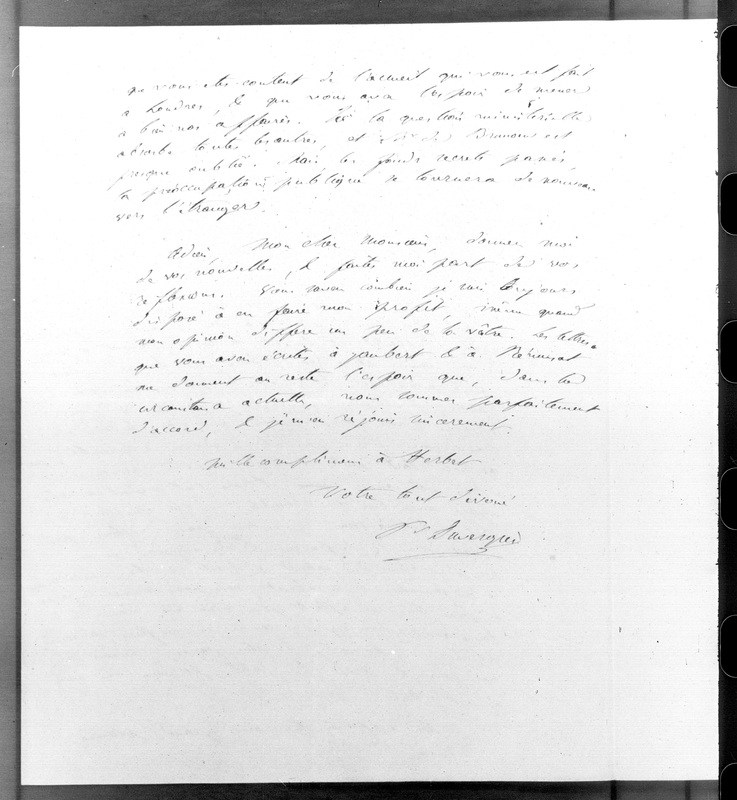 que vous êtes content de l'accueil qui vous est fait
à Londres, & que vous avez l'espoir de mener
à bien nos affaires. Ici la question ministérielle
absorbe toutes les autres, et de Brunow est
presque oublié. Mais les fonds secrets passés
la préoccupation publique se tournera de nouveau
vers l'étranger.
Adieu, Mon cher Monsieur, donnez moi
de vos nouvelles, & faites moi part de vos
réflexions. Vous savez combien je suis toujours
disposé à en faire mon profit, même quand
mon opinion diffère un peu de la vôtre. Les lettres
que vous avez écrites à Jaubert & à Rémusat
me donnent au reste l'espoir que, dans les
circonstances actuelles, nous sommes parfaitement
d'accord, & je m'en réjouis sincèrement.
Mille compliments à Herbet
Votre tout dévoué
Pr Duvergier